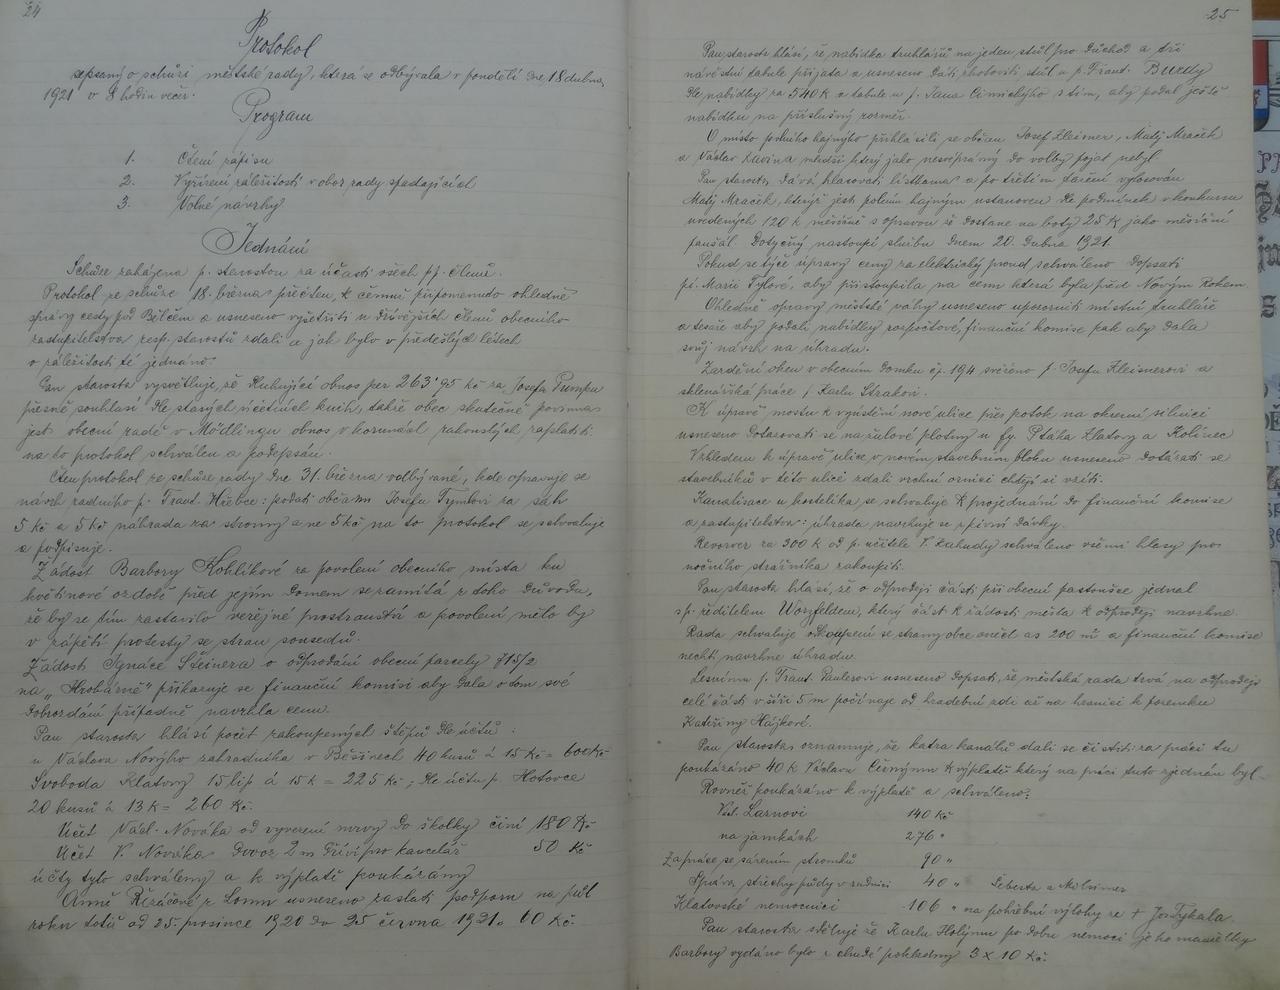 24
Protokol
sepsaný o schůzi městské rady, která se odbývala v pondělí dne 18 dubna
1921 v 8 hodin večer.
Program
1. Čtení zápisu
2. Vyřízení záležitostí v obor rady spadajících
3. Volné návrhy
Jednání
Schůze zahájena p. starostou za účasti všech pp. členů.
Protokol ze schůze 18. března přečten, k čemuž připomenuto ohledně
správy cesty pod Bilčem a usneseno vyšetřiti u dřívějších členů obecního
zastupitelstva resp. starostů zdali a jak bylo v předešlých letech
v záležitosti té jednáno.
Pan starosta vysvětluje, že dluhující obnos per 263'95 Kč za Josefa Pumpra
přesně souhlasí dle starých účetních knih, takže obec skutečně povinna
jest obecní radě v Mödlingu obnos v korunách rakouských zaplatiti.
na to protokol schválen a podepsán.
Čten protokol ze schůze rady dne 31. března odbývané, kde opravuje se
návrh radního p. Frant. Hřebce: podati občanu Josefu Tymlovi za sáh
5 Kč a 5 Kč náhrada za stromy a ne 5 Kč na to protokol se schvaluje
a podpisuje.
Žádost Barbory Kohlíkové za povolení obecního místa ku
květinové ozdobě před jejím domem se zamítá z toho důvodu,
že by se tím zastavilo veřejné prostranství a povolení mělo by
v zápětí protesty se stran sousedů.
Žádosti Ignáce Steinera o odprodání obecní parcely 715/2
na "Hrobárně" přikazuje se finanční komisi aby dala o tom své
dobrozdání případně navrhla cenu.
Pan starosta hlásí počet zakoupených štěpů dle účtů:
u Václava Nového zahradníka v Běšinech 40 kusů á 15 Kč = 600 Kč
Svoboda Klatovy 15 lip á 15 K = 225 Kč; dle účtu p. Hotovce
20 kusů á 13 K = 260 Kč.
Účet Václ. Nováka od vyvezení mrvy do školky činí 180 Kč
Účet V. Nováka dovoz 2 m dříví pro kancelář 50 Kč
účty tyto schváleny a k výplatě poukázány
Anně Řezáčové z Lomu usneseno zaslati podporu na půl
roku totiž od 25. prosince 1920 do 25 června 1921. 60 Kč.
25
Pan starosta hlásí, že nabídka truhlářů na jeden stůl pro důchod a tři
návěstní tabule přijata a usneseno dáti zhotoviti stůl u p. Frant. Buzdy
dle nabídky za 540 K a tabule u p. Jana Cimického s tím, aby podal ještě
nabídku na příslušný rozměr.
O místo polního hajného přihlásili se občan Josef Kleisner, Matěj Mraček
a Václav Kavina mladší který jako nesvéprávný do volby pojat nebyl
Pan starosta dává hlasovati lístkama a po třetím tažení vylosován
Matěj Mraček, kterýž jest polním hajným ustanoven dle podmínek v konkursu
uvedených 120 K měsíčně s opravou že dostane na boty 25 K jako měsíční
paušál Dotyčný nastoupí službu dnem 20. dubna 1921.
Pokud se týče úpravy ceny za elektrický proud schváleno dopsati
pí. Marii Tylové, aby přistoupila na cenu která byla před Novým rokem.
Ohledně opravy městské váhy usneseno upozorniti místní truhláře
a tesaře aby podali nabídky rozpočtové, finanční komise pak aby dala
svůj návrh na úhradu.
Zardění oken v obecním domku čp. 194 svěřeno p. Josefu Kleisnerovi a
sklenářská práce p. Karlu Strakovi.
K úpravě mostu k vyústění nové ulice přes potok na okresní silnici
usneseno dotazovati se na žulové plotny u fy. Ptáka Klatovy a Kolinec
Vzhledem k úpravě ulice v novém stavebním bloku usneseno dotázati se
stavebníků v této ulici zdali vrchní ornici chtějí si vzíti.
Kanalisace u kostelíka se schvaluje k projednání do finanční komise
a zastupitelstva: úhrada navrhuje se z pivní dávky.
Revolver za 300 K od p. učitele V. Zahudy schváleno všemi hlasy pro
nočního strážníka zakoupiti.
Pan starosta hlásí, že o odprodeji části při obecní pastoušce jednal
s p. ředitelem Worzfeldem, který část k žádosti města k odprodeji navrhne.
Rada schvaluje odkoupení se strany obce aniel as 200 m² a finanční komise
nechť navrhne úhradu.
Lesnímu p. Frant. Paulerovi usneseno dopsati, že městská rada trvá na odprodeji
celé části v šíři 5 m počínaje od hradební zdi až na hranici k pozemku
Kateřiny Hájkové.
Pan starosta oznamuje, že kadra kanálů dali se čistiti za práci tu
poukázáno 40 K Václavu Černýmu k výplatě který na práci tuto zjednán byl.
Rovněž poukázáno k výplatě a schváleno:
Václ. Laznovi 140 Kč
na jamkách 276 "
Za práce se sázením stromků 90 "
Správa střechy půdy v radnici 40 " Šebesta a Molnimer
Klatovské nemocnici 106 " na pohřební výlohy ze + Jos. Tykala.
Pan starosta sděluje že Karlu Holýmu po dobu nemoci jeho manželky
Barbory vydáno bylo z chudé pokladny 3 x 10 Kč.